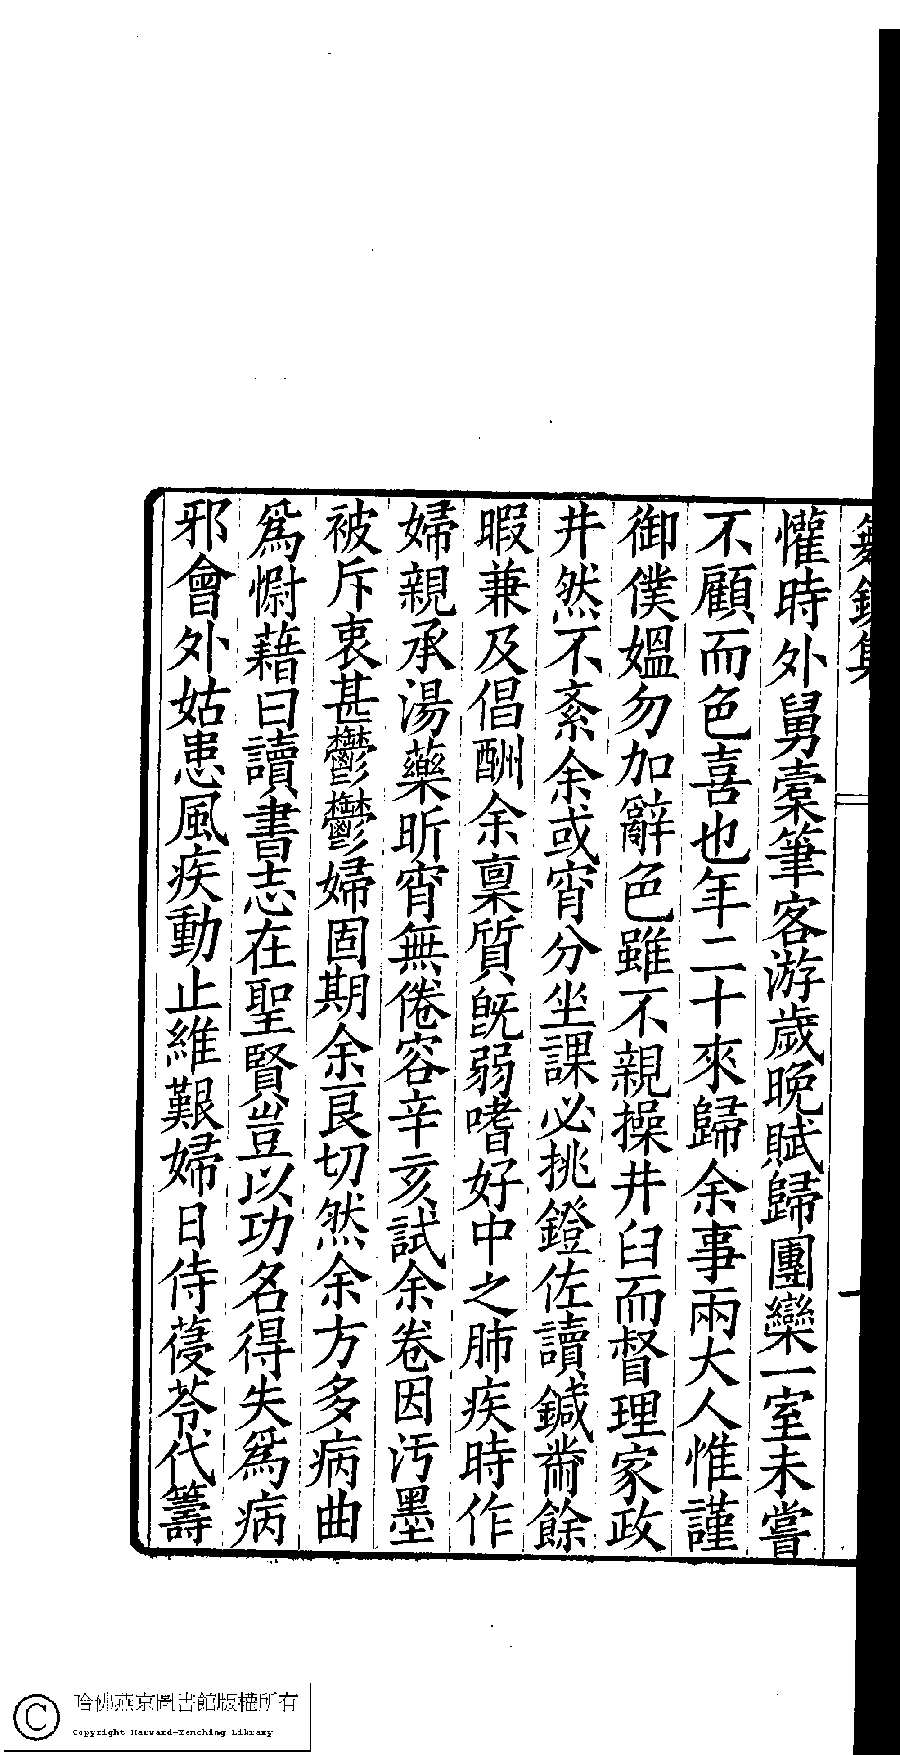 懽時外舅橐筆客游歲晚賦歸團欒一室未嘗
不顧而色喜也年二十來歸余事兩大人惟謹
御僕媼勿加辭色雖不親操井臼而督理家政
井然不紊余或宵分坐課必挑鐙佐讀鍼黹餘
暇兼及倡酬余稟質旣弱嗜好中之肺疾時作
婦親承湯藥昕宵無倦容辛亥試余卷因汚墨
被斥衷甚鬱鬱婦固期余艮切然余方多病曲
爲慰藉曰讀書志在聖賢豈以功名得失爲病
邪會外姑患風疾動止維艱婦日侍葠苓代籌
一
哈佛燕京圖書館版權所有
Copyright Harvard-Yenching Library